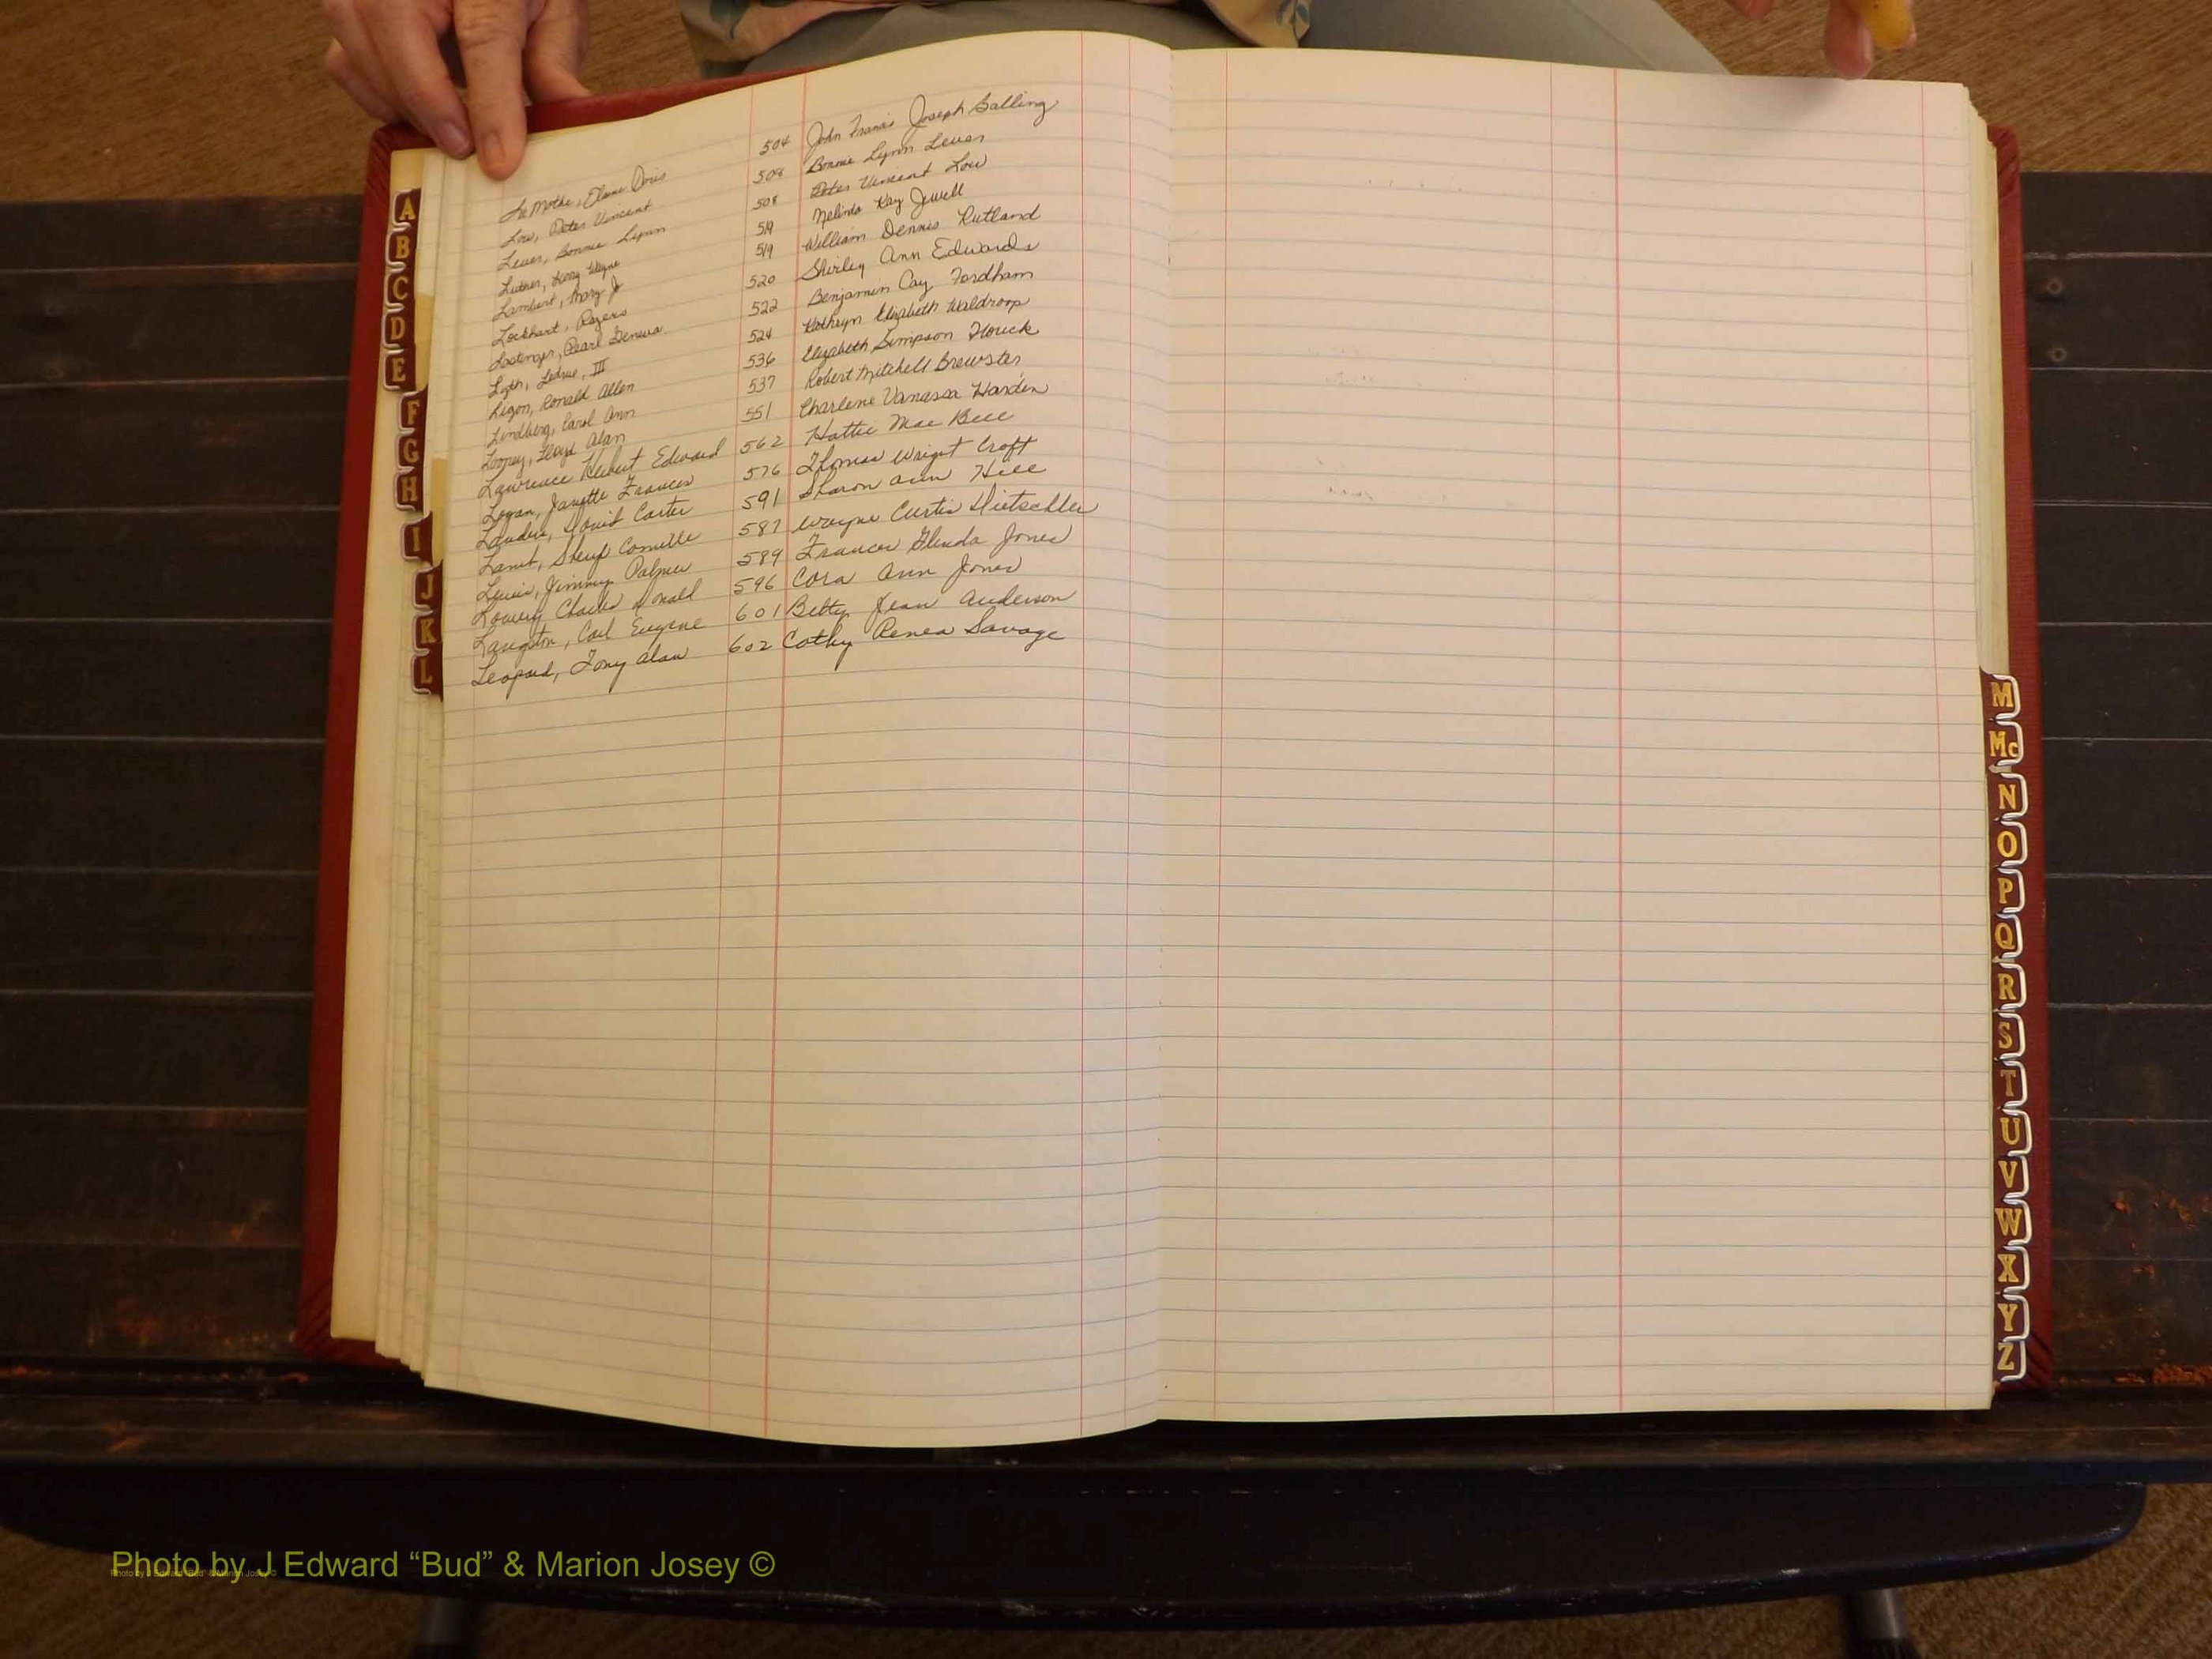 La Mothe, Elaine Doris 504 John Francis Joseph Balling
Low, Peter Vincent 508 Bonnie Lynn Lever
Lever, Bonnie Lynn 508 Peter Vincent Low
Luther, Wayne 519 Melinda Kay Jewell
Lambert, Mary J 519 William Dennis Rutland
Lockhart, Rogers 520 Shirley Ann Edwards
Lastinger, Pearl Geneva 522 Benjamin Cay Fordham
III 524 Kathryn Elizabeth Waldroop
Ligon, Ronald Allen 536 Elizabeth Simpson Houck
Lindberg, Carol Ann 537 Robert Mitchell Brewster
Looney, Lloyd Alan 551 Charlene Vanassa Harden
Lawrence Hubert Edward 562 Hattie Mae Bell
Logan, Janette Frances 576 Thomas Wright Croft
David Carter 591 Sharon Ann Hill
587 Wayne Curtis Dietschler
Lewis, Jimmy Palmer 589 Frances Glenda Jones
Lowery Charles Donald 596 Cora Ann Jones
Langston, Carl Eugene 601 Betty Jean Anderson
Leopard, Tony Alan 602 Cathy Renea Savage
A
B
C
D
E
F
G
H
I
J
K
L
M
Mc
N
O
P
Q
R
S
T
U
V
W
X
Y
Z
Photo by J Edward “Bud” & Marion Josey ©
Photo by J Edward "Bud" & Marion Josey ©